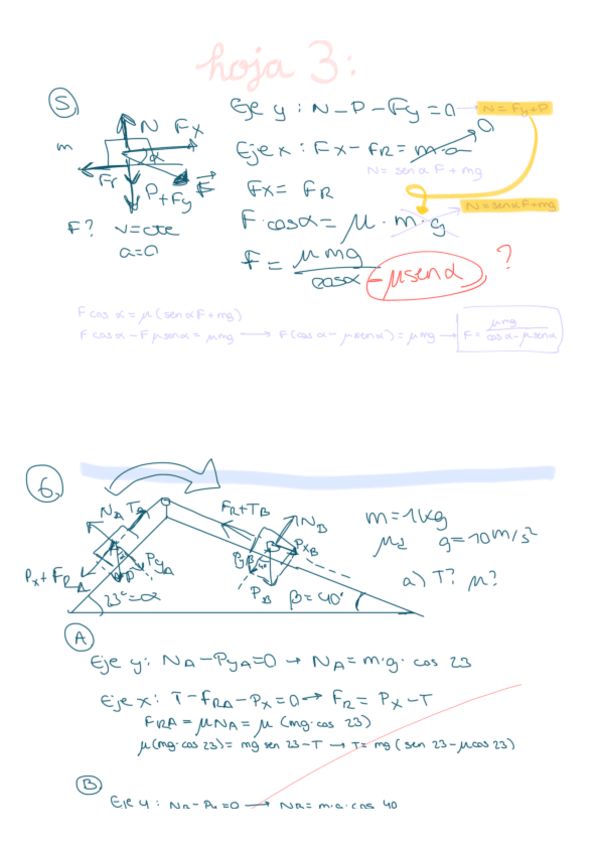 hoja 3:
5.
N Fx
m
α
Fr P+Fy F⃗
F? v=cte
a=0
Eje y: N-P-Fy=0 → N=Fy+P
Eje x: Fx-FR=m·a 0
N= senα F+mg
Fx= FR
F·cosα= μ·m·g N=senαF+mg
F= μmg / cosα-μsenα ?
F cos α = μ(sen α F+mg)
F cos α-F μsenα= μmg → F(cos α-μsenα)=μmg → F= μmg / cos α-μsenα
6.
NA TA FR+TB NB
PxB
PyA
Px+FRA P PB
23°=α β=40°
m=1kg
g=10m/s²
a) T? μ?
A
Eje y: NA-PyA=0 → NA=m·g·cos 23
Eje x: T-FRA-Px=0 → FR= Px-T
FRA= μNA= μ(mg·cos 23)
μ(mg·cos 23)= mg sen 23-T → T= mg(sen 23-μcos 23)
B